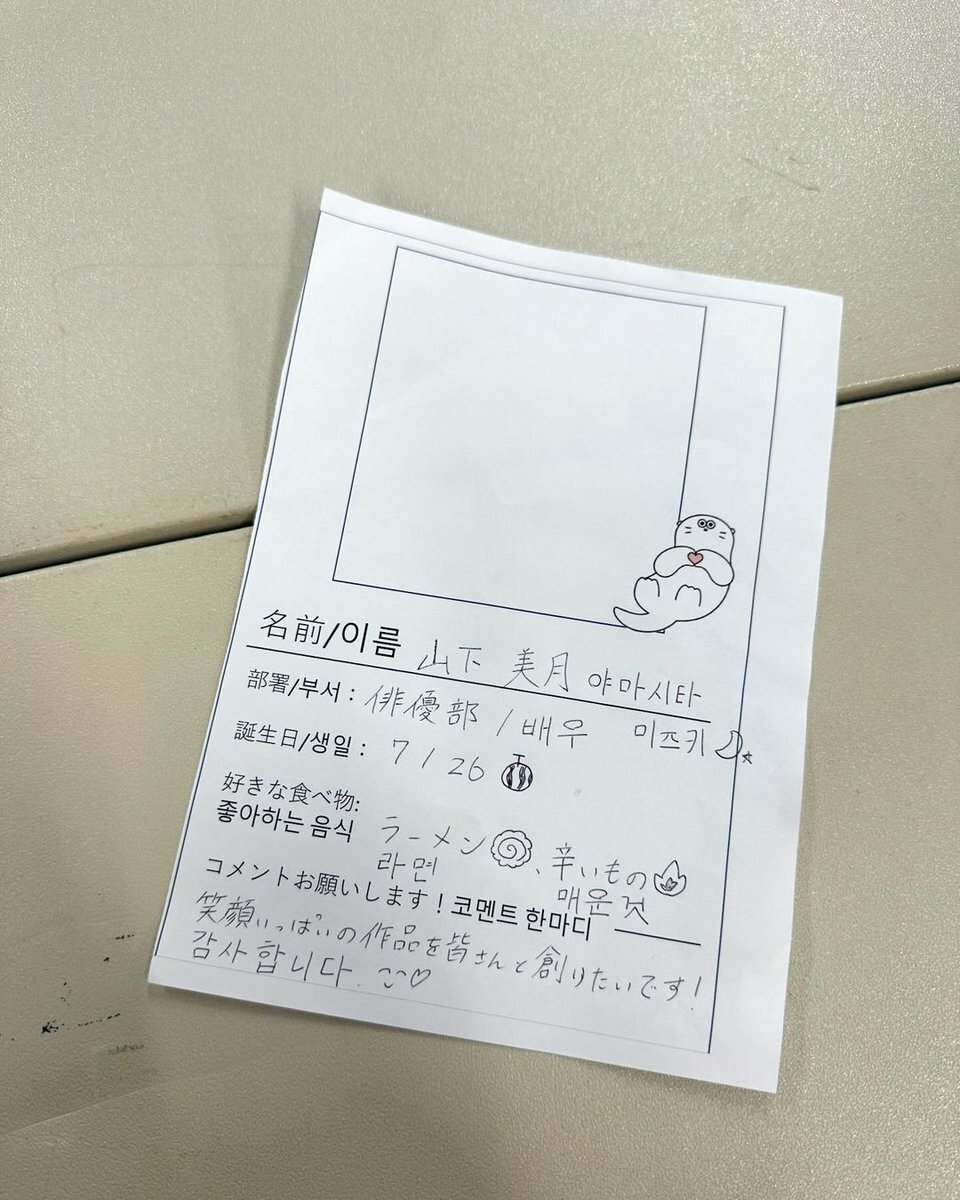 名前/이름 山下 美月 야마시타
미즈키
部署/부서 : 俳優部 / 배우
誕生日/생일 : 7 / 26
好きな食べ物:
좋아하는 음식
ラーメン、辛いもの
라면 매운 것
コメントお願いします！코멘트 한마디
笑顔いっぱいの作品を皆さんと創りたいです！
감사합니다.